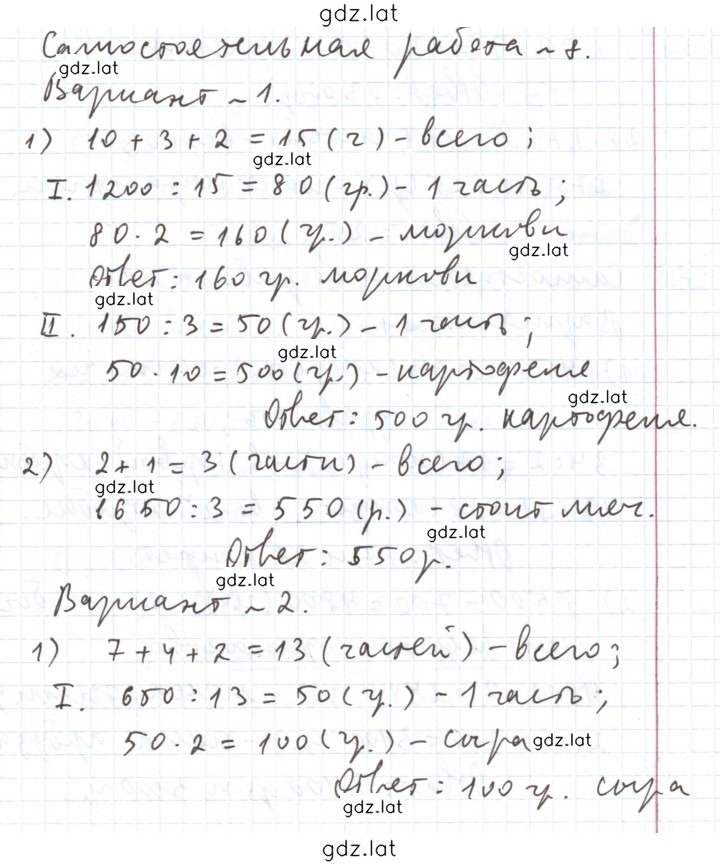 gdz.lat
Самостоятельная работа ~ 8.
gdz.lat
Вариант ~ 1.
1) 10 + 3 + 2 = 15 (ч) - всего;
gdz.lat
I. 1200 : 15 = 80 (гр.) - 1 часть;
80 · 2 = 160 (гр.) - моркови
gdz.lat
Ответ: 160 гр. моркови
gdz.lat
II. 150 : 3 = 50 (гр.) - 1 часть;
gdz.lat
50 · 10 = 500 (гр.) - картофеля
gdz.lat
Ответ: 500 гр. картофеля.
2) 2 + 1 = 3 (части) - всего;
gdz.lat
1650 : 3 = 550 (р.) - стоит мяч.
gdz.lat
Ответ: 550 р.
gdz.lat
Вариант ~ 2.
1) 7 + 4 + 2 = 13 (частей) - всего;
I. 650 : 13 = 50 (г.) - 1 часть;
50 · 2 = 100 (гр.) - сыра gdz.lat
Ответ: 100 гр. сыра
gdz.lat
gdz.lat